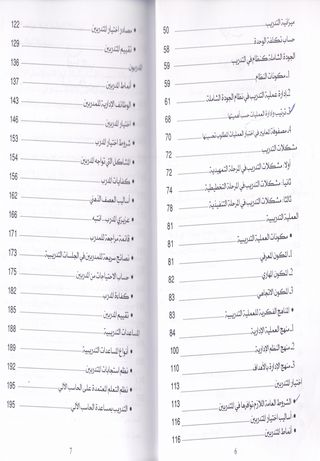 ميزانية التدريب 50
حساب تكلفة الوحدة 58
الجودة الشاملة كنظام في التدريب 59
1ـ مكونات النظام 59
2ـ إدارة عملية التدريب في نظام الجودة الشاملة 61
3ـ ترتيب وإدارة العمليات حسب أهميتها 68
4ـ مصفوفة المعايير في اختيار العمليات المطلوب تحسينها 70
مشكلات التدريب 72
أولا: مشكلات التدريب في المرحلة التمهيدية 72
ثانيا: مشكلات التدريب في المرحلة التخطيطية 74
ثالثا: مشكلات التدريب في المرحلة التنفيذية 78
العملية التدريبية 81
• مكونات العملية التدريبية 81
1ـ المكون المعرفي 81
2ـ المكون المهاري 82
3ـ المكون الاتجاهي 83
• المناهج الفكرية للعملية التدريبية 83
1ـ منهج العملية الإدارية 84
2ـ منهج النظم الإدارية 100
3ـ منهج الإدارة بالأهداف 110
اختيار المتدربين 113
• الشروط العامة اللازم توافرها في المتدربين 113
• أساليب اختيار المتدربين 116
• أنماط المتدربين 116
6
• مصادر اختيار المتدربين 122
• تقييم المتدربين 129
المدربون 136
• أنماط المدربين 137
• الوظائف الإدارية للمدربين 143
• اختيار المدربين 146
• شروط اختيار المدرب 153
• المشاكل التي تواجه المدربين 154
• كفايات المدرب 156
• أساليب العصف الذهني 162
• عزيزي المدرب.. انتبه 166
• قائمة مراجعة للمدرب 171
• نصائح سريعة للمدربين في الجلسات التدريبية 173
• حساب الاحتياجات من المدربين 175
• كفاءة المدرب 182
• تقييم المدربين 185
المساعدات التدريبية 188
• أنواع المساعدات التدريبية 189
• نظم استجابات المتدربين 192
• نظم التعلم المعتمدة على الحاسب الآلي 195
• التدريب بمساعدة الحاسب الآلي 195
7